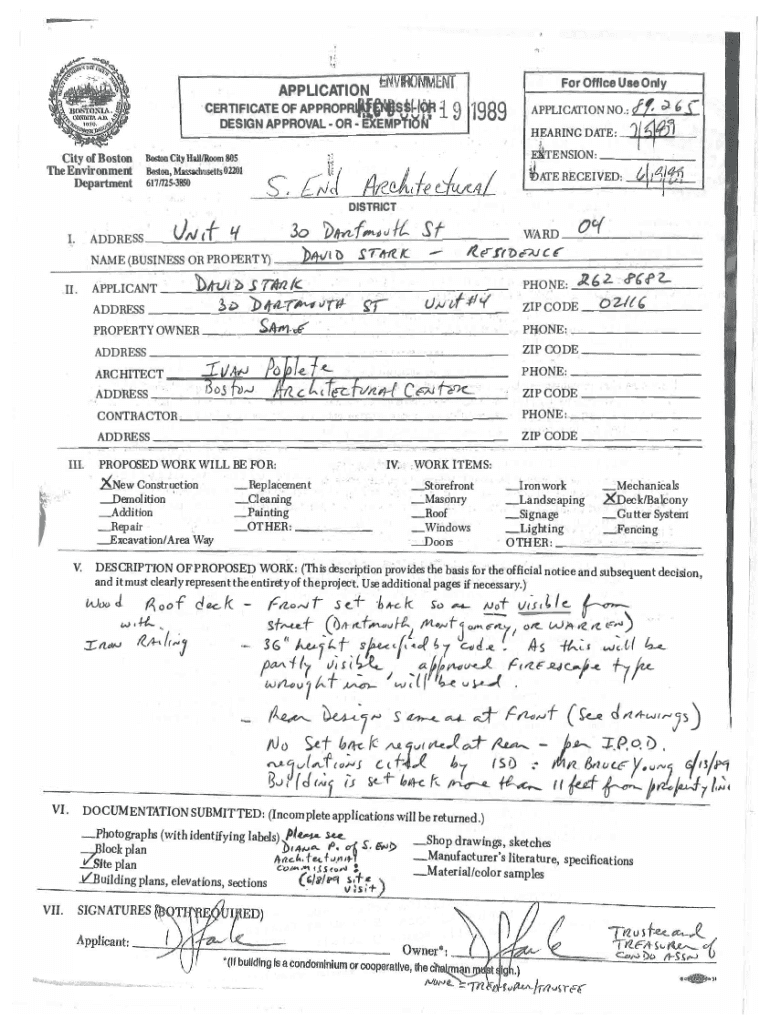 BOSTONIA
CONDITA A.D.
1630.
APPLICATION
CERTIFICATE OF APPROPRIATENESS - OR -
DESIGN APPROVAL - OR - EXEMPTION
ENVIRONMENT
19 1989
For Office Use Only
APPLICATION NO.: 89.265
HEARING DATE: 7/5/89
EXTENSION:
DATE RECEIVED: 6/19/89
City of Boston
The Environment
Department
Boston City Hall/Room 805
Boston, Massachusetts 02201
617/725-3850
S. End Architectural
DISTRICT
I. ADDRESS Unit 4 30 Dartmouth St WARD 04
NAME (BUSINESS OR PROPERTY) DAVID STARK - RESIDENCE
II. APPLICANT DAVID STARK PHONE: 262 8682
ADDRESS 30 DARTMOUTH ST Unit #4 ZIP CODE 02116
PROPERTY OWNER SAME PHONE:
ADDRESS ZIP CODE
ARCHITECT IVAN Poplete PHONE:
ADDRESS Boston Architectural Center ZIP CODE
CONTRACTOR PHONE:
ADDRESS ZIP CODE
III. PROPOSED WORK WILL BE FOR: IV. WORK ITEMS:
X New Construction Replacement Storefront Ironwork Mechanicals
Demolition Cleaning Masonry Landscaping X Deck/Balcony
Addition Painting Roof Signage Gutter System
Repair OTHER: Windows Lighting Fencing
Excavation/Area Way Doors OTHER:
V. DESCRIPTION OF PROPOSED WORK: (This description provides the basis for the official notice and subsequent decision,
and it must clearly represent the entirety of the project. Use additional pages if necessary.)
Wood Roof deck - Front set back so as not visible from
with street (Dartmouth, Montgomery, or WARREN)
Iron Railing - 36" height specified by code. As this will be
partly visible, approved FIRE escape type
wrought iron will be used.
- Rear Design same as at Front (See drawings)
No Set back required at Rear - per I.P.O.D.
regulations cited by ISD: MR BRUCE YOUNG 6/13/89
Building is set back more than 11 feet from property line
VI. DOCUMENTATION SUBMITTED: (Incomplete applications will be returned.)
Photographs (with identifying labels) Please see
Block plan DIANA P. of S. END
✓ Site plan Architectural
Commission:
✓ Building plans, elevations, sections (6/8/89 site
visit)
Shop drawings, sketches
Manufacturer's literature, specifications
Material/color samples
VII. SIGNATURES (BOTH REQUIRED)
Applicant: Owner*:
Trustee and
TREASURER of
CONDO ASSN
*(If building is a condominium or cooperative, the chairman must sign.)
NONE = TREASURER/TRUSTEE